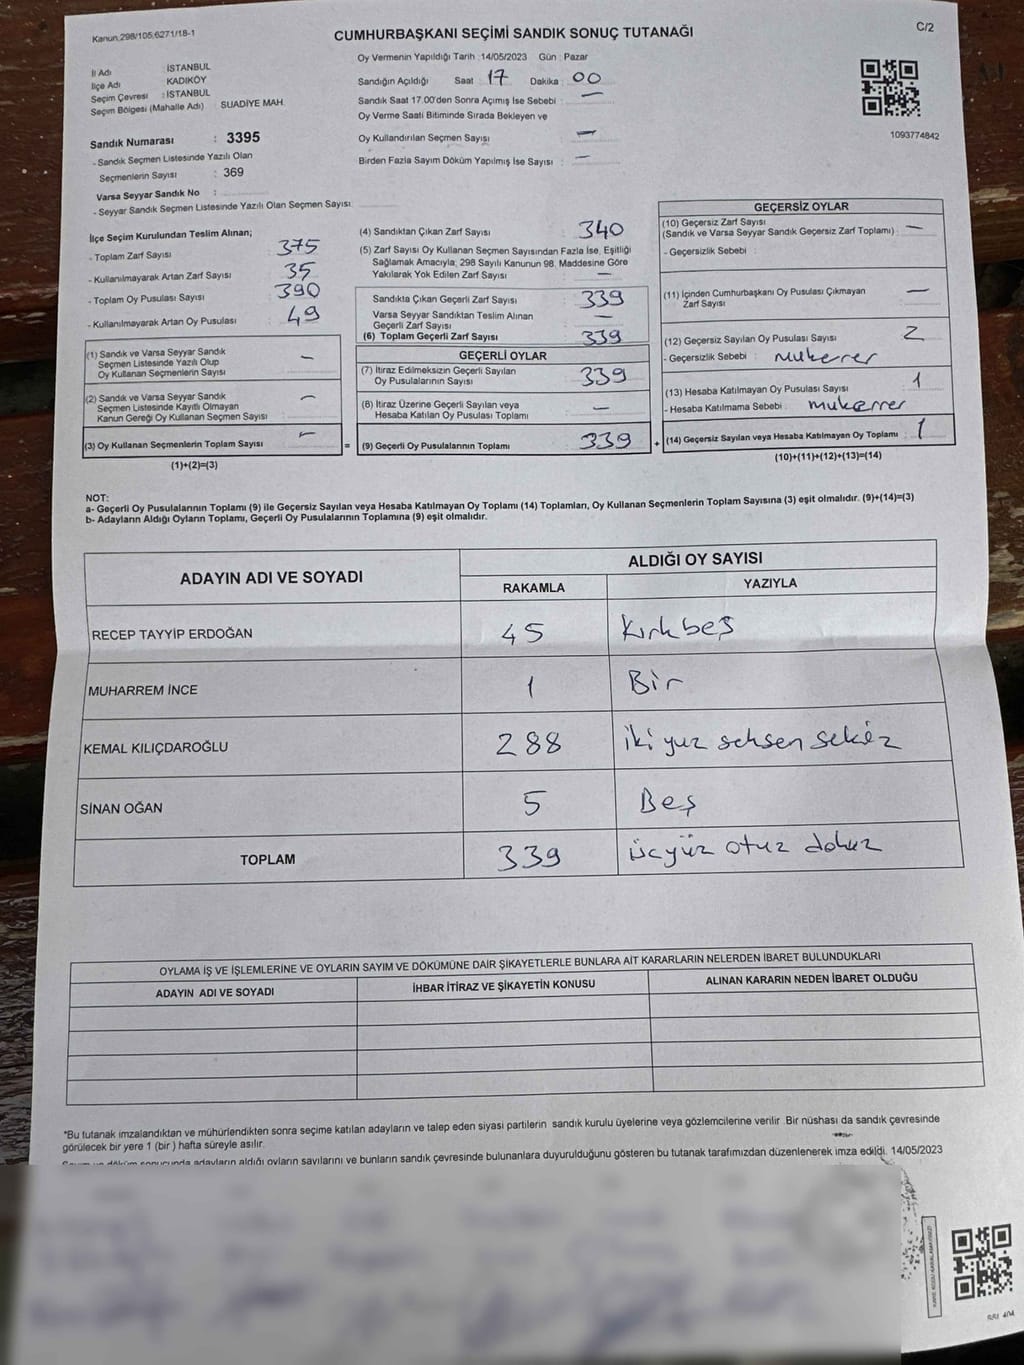 Kanun 298/105,6271/18-1
CUMHURBAŞKANI SEÇİMİ SANDIK SONUÇ TUTANAĞI
C/2
İl Adı : İSTANBUL
İlçe Adı : KADIKÖY
Seçim Çevresi : İSTANBUL
Seçim Bölgesi (Mahalle Adı) : SUADİYE MAH.
Sandık Numarası : 3395
- Sandık Seçmen Listesinde Yazılı Olan
Seçmenlerin Sayısı : 369
Varsa Seyyar Sandık No :
- Seyyar Sandık Seçmen Listesinde Yazılı Olan Seçmen Sayısı
Oy Vermenin Yapıldığı Tarih :14/05/2023 Gün : Pazar
Sandığın Açıldığı Saat 17 Dakika : 00
Sandık Saat 17.00'den Sonra Açımış İse Sebebi : —
Oy Verme Saati Bitiminde Sırada Bekleyen ve
Oy Kullandırılan Seçmen Sayısı : —
Birden Fazla Sayım Döküm Yapılmış İse Sayısı : —
1093774842
İlçe Seçim Kurulundan Teslim Alınan;
- Toplam Zarf Sayısı : 375
- Kullanılmayarak Artan Zarf Sayısı : 35
- Toplam Oy Pusulası Sayısı : 390
- Kullanılmayarak Artan Oy Pusulası : 49
(1) Sandık ve Varsa Seyyar Sandık
Seçmen Listesinde Yazılı Olup
Oy Kullanan Seçmenlerin Sayısı : —
(2) Sandık ve Varsa Seyyar Sandık
Seçmen Listesinde Kayıtlı Olmayan
Kanun Gereği Oy Kullanan Seçmen Sayısı : —
(3) Oy Kullanan Seçmenlerin Toplam Sayısı : —
(1)+(2)=(3)
=
(4) Sandıktan Çıkan Zarf Sayısı : 340
(5) Zarf Sayısı Oy Kullanan Seçmen Sayısından Fazla İse, Eşitliği
Sağlamak Amacıyla; 298 Sayılı Kanunun 98. Maddesine Göre
Yakılarak Yok Edilen Zarf Sayısı : —
Sandıkta Çıkan Geçerli Zarf Sayısı : 339
Varsa Seyyar Sandıktan Teslim Alınan
Geçerli Zarf Sayısı : —
(6) Toplam Geçerli Zarf Sayısı : 339
GEÇERLİ OYLAR
(7) İtiraz Edilmeksizin Geçerli Sayılan
Oy Pusulalarının Sayısı : 339
(8) İtiraz Üzerine Geçerli Sayılan veya
Hesaba Katılan Oy Pusulası Toplamı : —
(9) Geçerli Oy Pusulalarının Toplamı : 339
+
GEÇERSİZ OYLAR
(10) Geçersiz Zarf Sayısı
(Sandık ve Varsa Seyyar Sandık Geçersiz Zarf Toplamı) : —
- Geçersizlik Sebebi :
(11) İçinden Cumhurbaşkanı Oy Pusulası Çıkmayan
Zarf Sayısı : —
(12) Geçersiz Sayılan Oy Pusulası Sayısı : 2
- Geçersizlik Sebebi : mukerer
(13) Hesaba Katılmayan Oy Pusulası Sayısı : 1
- Hesaba Katılmama Sebebi : mukerrer
(14) Geçersiz Sayılan veya Hesaba Katılmayan Oy Toplamı : 1
(10)+(11)+(12)+(13)=(14)
NOT:
a- Geçerli Oy Pusulalarının Toplamı (9) ile Geçersiz Sayılan veya Hesaba Katılmayan Oy Toplamı (14) Toplamları, Oy Kullanan Seçmenlerin Toplam Sayısına (3) eşit olmalıdır. (9)+(14)=(3)
b- Adayların Aldığı Oyların Toplamı, Geçerli Oy Pusulalarının Toplamına (9) eşit olmalıdır.
ADAYIN ADI VE SOYADI
ALDIĞI OY SAYISI
RAKAMLA YAZIYLA
RECEP TAYYİP ERDOĞAN 45 Kırkbeş
MUHARREM İNCE 1 Bir
KEMAL KILIÇDAROĞLU 288 iki yuz seksen sekiz
SİNAN OĞAN 5 Beş
TOPLAM 339 üçyüz otuz dokuz
OYLAMA İŞ VE İŞLEMLERİNE VE OYLARIN SAYIM VE DÖKÜMÜNE DAİR ŞİKAYETLERLE BUNLARA AİT KARARLARIN NELERDEN İBARET BULUNDUKLARI
ADAYIN ADI VE SOYADI İHBAR İTİRAZ VE ŞİKAYETİN KONUSU ALINAN KARARIN NEDEN İBARET OLDUĞU
*Bu tutanak imzalandıktan ve mühürlendikten sonra seçime katılan adayların ve talep eden siyasi partilerin sandık kurulu üyelerine veya gözlemcilerine verilir. Bir nüshası da sandık çevresinde
görülecek bir yere 1 (bir ) hafta süreyle asılır.
Sayım ve döküm sonucunda adayların aldığı oyların sayılarını ve bunların sandık çevresinde bulunanlara duyurulduğunu gösteren bu tutanak tarafımızdan düzenlenerek imza edildi. 14/05/2023